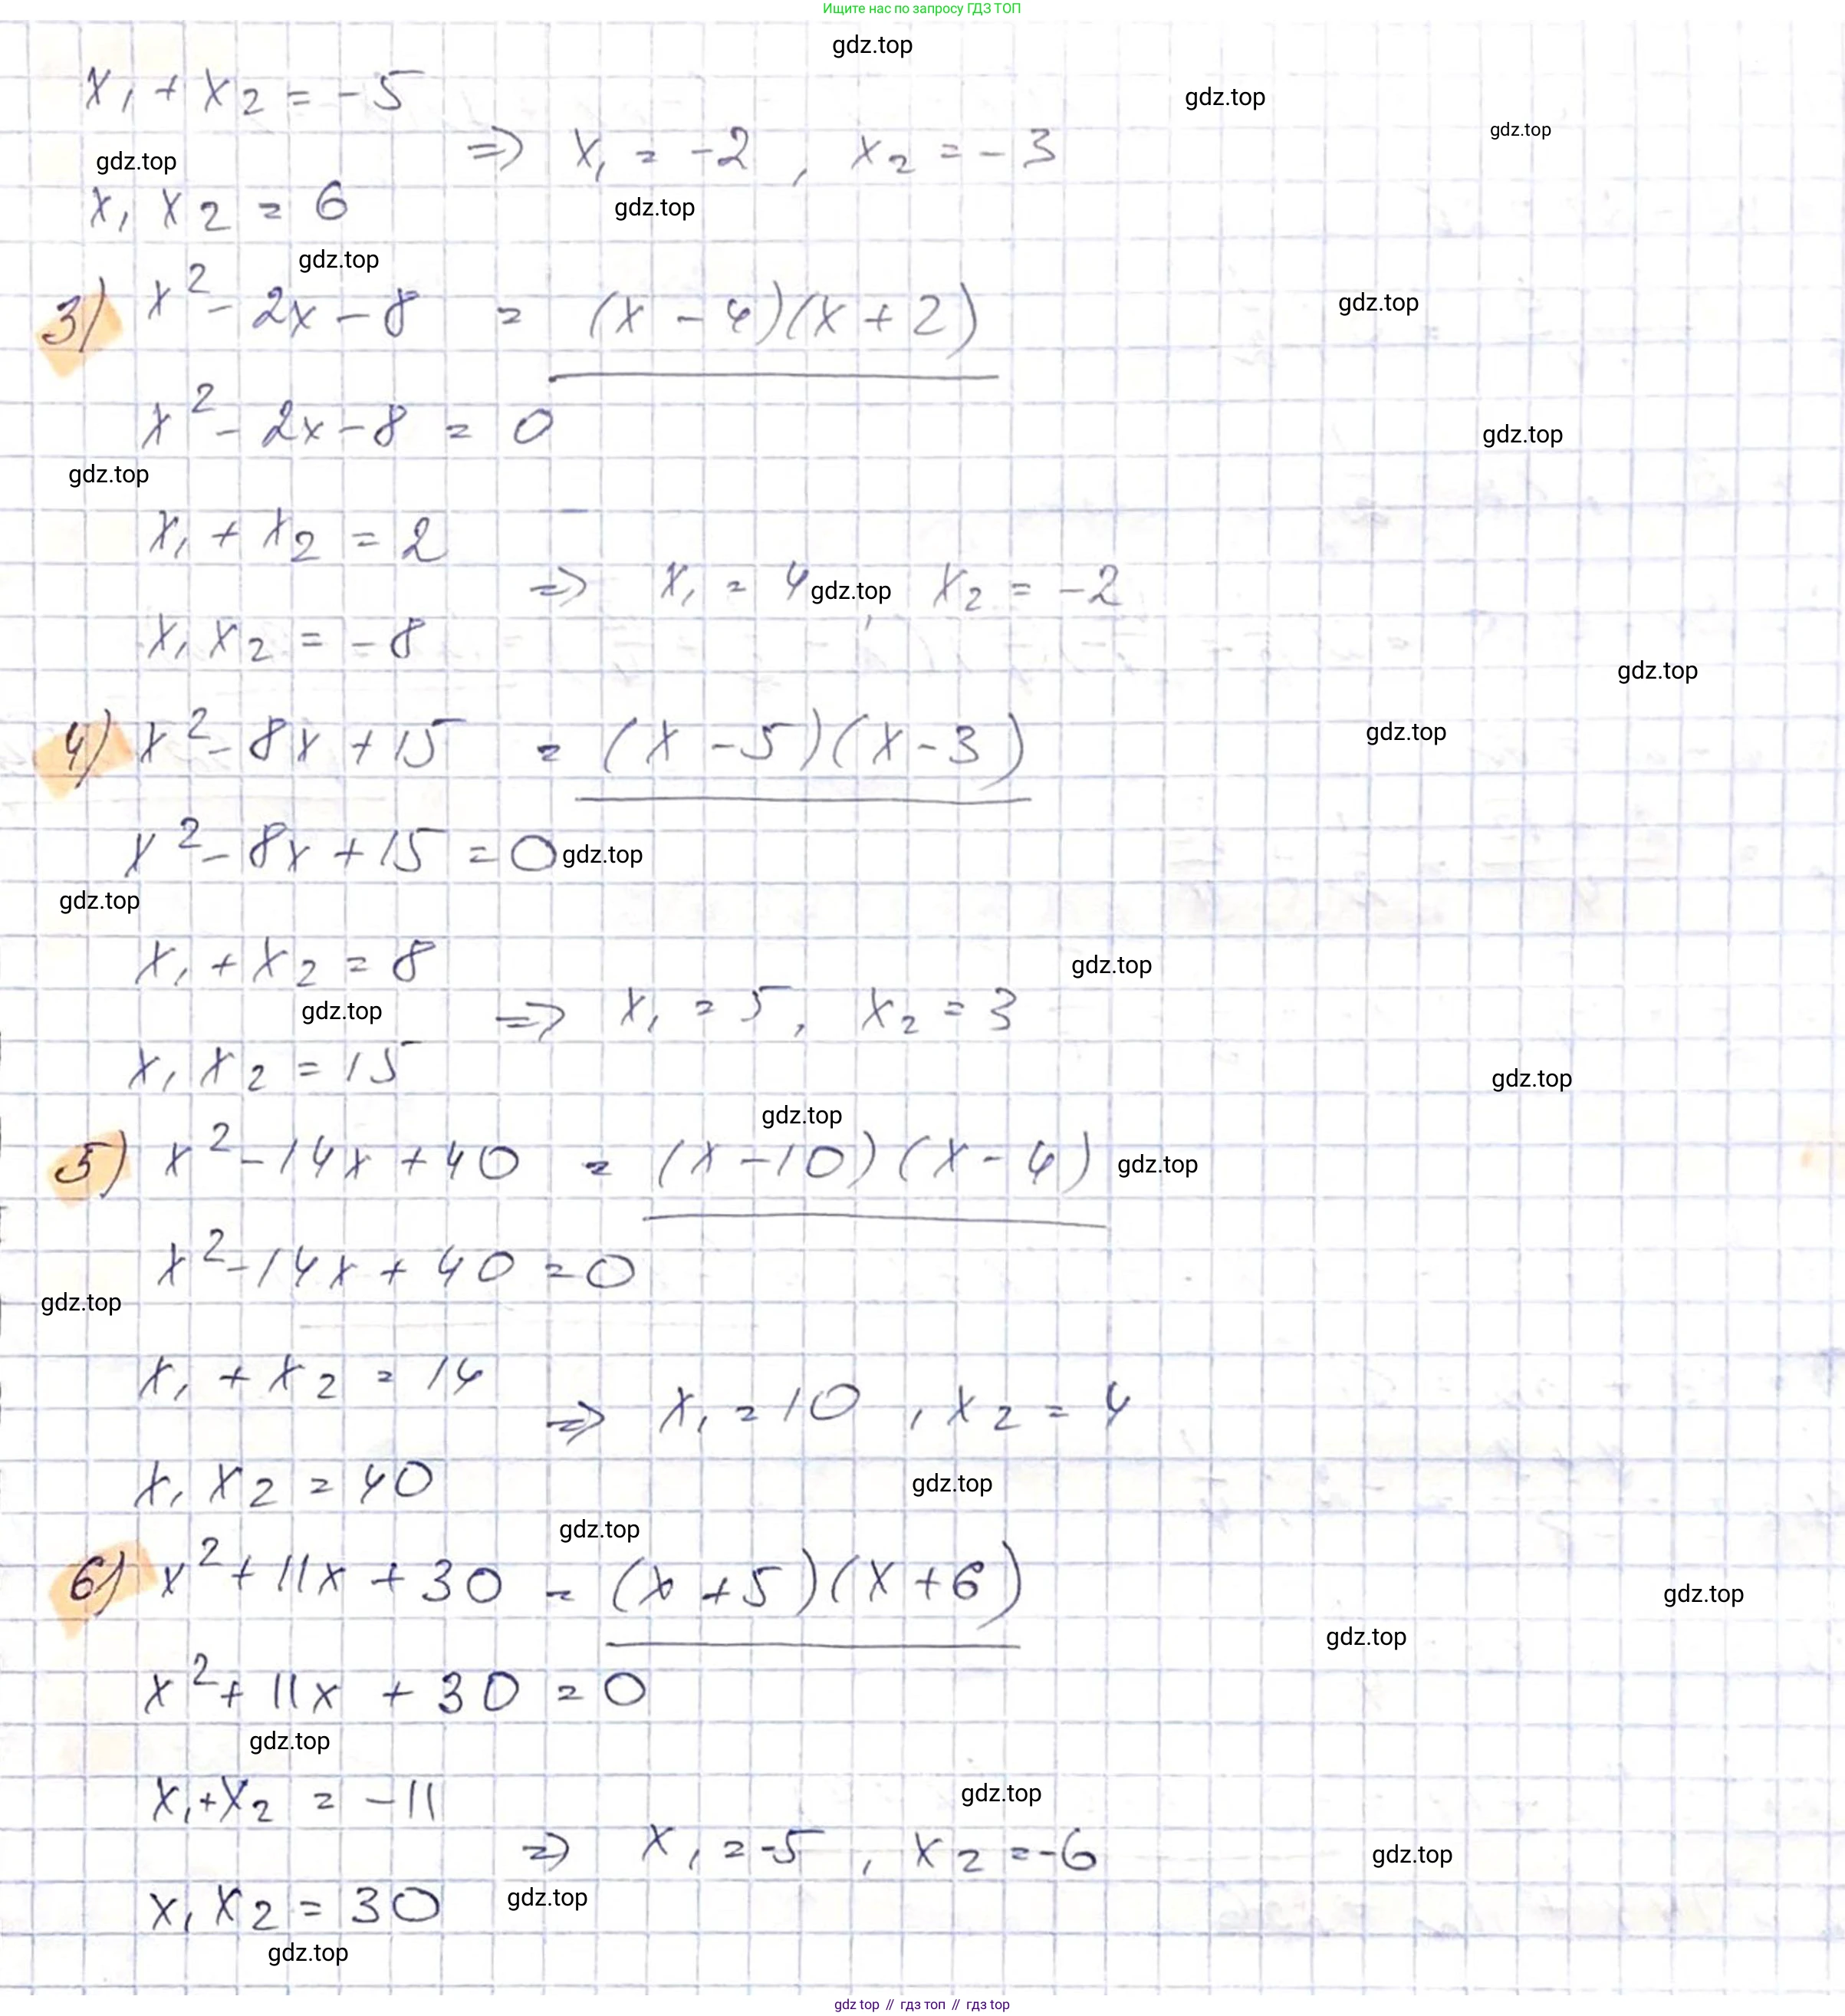 Ищите нас по запросу ГДЗ ТОП
gdz.top
gdz.top
x₁ + x₂ = -5
gdz.top
⇒ x₁ = -2 , x₂ = -3
gdz.top
x₁ x₂ = 6
gdz.top
gdz.top
3) x² - 2x - 8 = (x - 4)(x + 2)
gdz.top
x² - 2x - 8 = 0
gdz.top
gdz.top
x₁ + x₂ = 2
⇒ x₁ = 4 , x₂ = -2
gdz.top
x₁ x₂ = -8
gdz.top
4) x² - 8x + 15 = (x - 5)(x - 3)
gdz.top
x² - 8x + 15 = 0
gdz.top
gdz.top
x₁ + x₂ = 8
gdz.top
⇒ x₁ = 5 , x₂ = 3
gdz.top
x₁ x₂ = 15
gdz.top
gdz.top
5) x² - 14x + 40 = (x - 10)(x - 4)
gdz.top
x² - 14x + 40 = 0
gdz.top
x₁ + x₂ = 14
⇒ x₁ = 10 , x₂ = 4
x₁ x₂ = 40
gdz.top
gdz.top
6) x² + 11x + 30 = (x + 5)(x + 6)
gdz.top
gdz.top
x² + 11x + 30 = 0
gdz.top
x₁ + x₂ = -11
gdz.top
⇒ x₁ = -5 , x₂ = -6
gdz.top
x₁ x₂ = 30
gdz.top
gdz.top
gdz top // гдз топ // gdz top